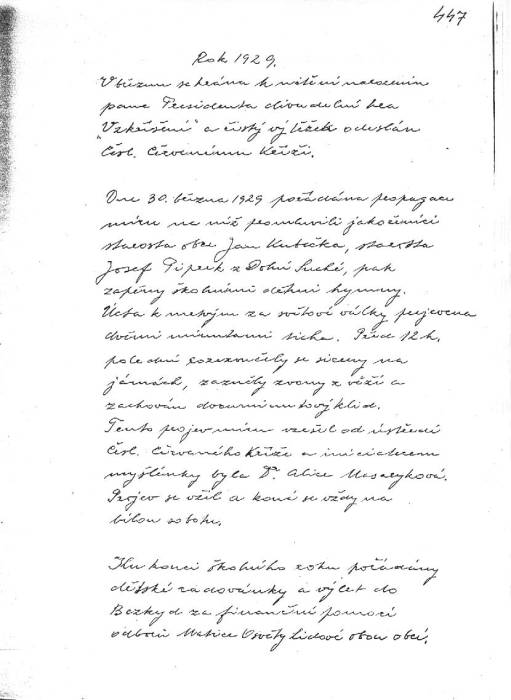 447
Rok 1929.
V březnu sehrána k uctění narozenin
pana Presidenta divadelní hra
"Vzkříšení" a čistý výtěžek odeslán
Čsl. Červenému Kříži.
Dne 30. března 1929 pořádána propagace
míru na níž promluvili jako řečníci
starosta obce Jan Kubička, starosta
Josef Piprek z Dolní Suché, pak
zapěny školními dětmi hymny.
Úcta k mrtvým za světové války projevena
dvěmi minutami ticha. Před 12 h.
polední rozezvučely se sireny na
jámách, zazněly zvony z věží a
zachován dvouminutový klid.
Tento projev míru vzešel od ústředí
Čsl. Červeného Kříže a iniciatorem
myšlenky byla Dr. Alice Masaryková.
Projev se vžil a koná se vždy na
bílou sobotu.
Ku konci školního roku pořádány
dětské radovánky a výlet do
Bezkyd za finanční pomoci
odborů Matice Osvěty Lidové obou obcí.